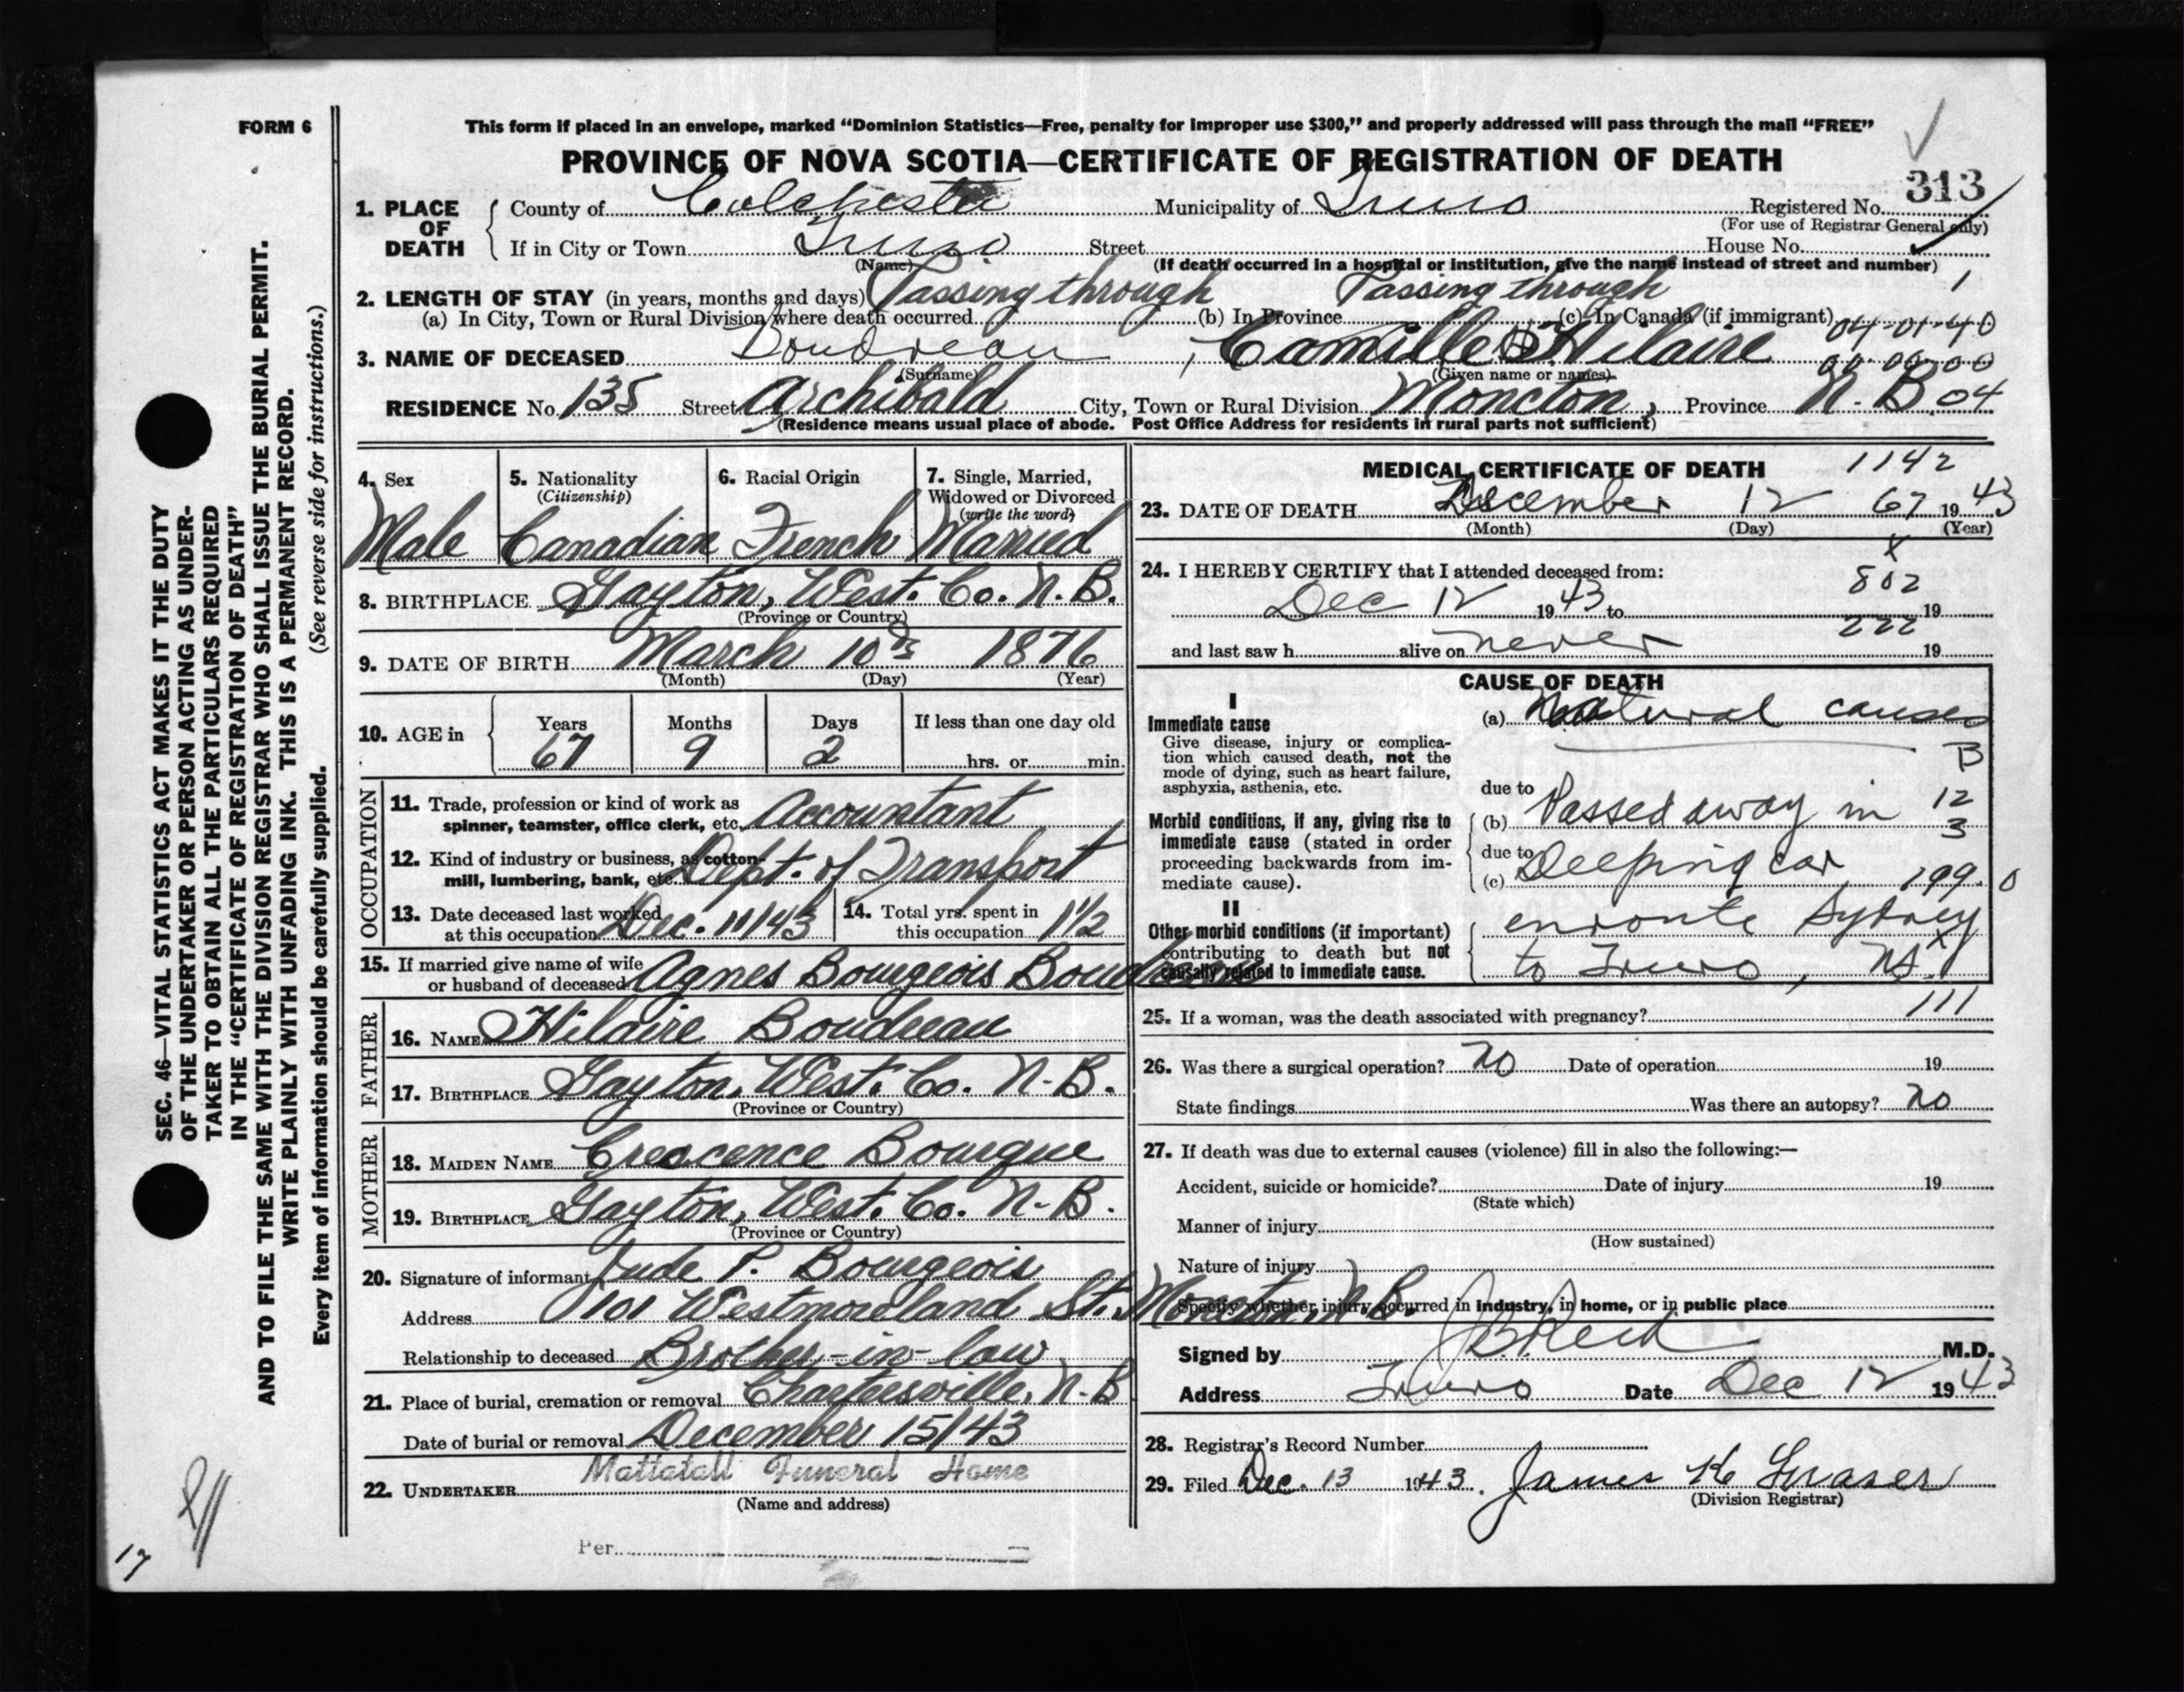 FORM 6
This form if placed in an envelope, marked “Dominion Statistics—Free, penalty for improper use $300,” and properly addressed will pass through the mail “FREE”
PROVINCE OF NOVA SCOTIA—CERTIFICATE OF REGISTRATION OF DEATH
313
1. PLACE OF DEATH
County of Colchester Municipality of Truro Registered No.
(For use of Registrar General only)
If in City or Town Truro Street House No.
(Name) (If death occurred in a hospital or institution, give the name instead of street and number)
2. LENGTH OF STAY (in years, months and days) Passing through Passing through 1
(a) In City, Town or Rural Division where death occurred (b) In Province (c) In Canada (if immigrant)
04-01-40
3. NAME OF DECEASED Boudreau, Camille Hilaire 00-00-00
(Surname) (Given name or names)
RESIDENCE No. 135 Street Archibald City, Town or Rural Division Moncton, Province N.B. 04
(Residence means usual place of abode. Post Office Address for residents in rural parts not sufficient)
4. Sex
Male
5. Nationality
(Citizenship)
Canadian
6. Racial Origin
French
7. Single, Married,
Widowed or Divorced
(write the word)
Married
8. BIRTHPLACE Gayton, West. Co. N.B.
(Province or Country)
9. DATE OF BIRTH March 10 1876
(Month) (Day) (Year)
10. AGE in
Years Months Days If less than one day old
67 9 2 hrs. or min.
OCCUPATION
11. Trade, profession or kind of work as
spinner, teamster, office clerk, etc. Accountant
12. Kind of industry or business, as cotton-
mill, lumbering, bank, etc. Dept. of Transport
13. Date deceased last worked
at this occupation Dec. 11/43
14. Total yrs. spent in
this occupation 1 1/2
15. If married give name of wife
or husband of deceased Agnes Bourgeois Boudreau
FATHER
16. NAME Hilaire Boudreau
17. BIRTHPLACE Gayton, West. Co. N.B.
(Province or Country)
MOTHER
18. MAIDEN NAME Crescence Bourque
19. BIRTHPLACE Gayton, West. Co. N.B.
(Province or Country)
20. Signature of informant Jude P. Bourgeois
Address 101 Westmoreland St. Moncton, N.B.
Relationship to deceased Brother-in-law
21. Place of burial, cremation or removal Chartersville, N.B
Date of burial or removal December 15/43
22. UNDERTAKER Mattatall Funeral Home
(Name and address)
Per
MEDICAL CERTIFICATE OF DEATH 1142
23. DATE OF DEATH December 12 67 1943
(Month) (Day) (Year)
X
24. I HEREBY CERTIFY that I attended deceased from: 802
Dec 12 1943 to 19
222
and last saw h alive on never 19
CAUSE OF DEATH
I
Immediate cause
Give disease, injury or complica-
tion which caused death, not the
mode of dying, such as heart failure,
asphyxia, asthenia, etc.
(a) Natural causes
B
Morbid conditions, if any, giving rise to
immediate cause (stated in order
proceeding backwards from im-
mediate cause).
due to
(b) Passed away in 12
3
due to
(c) Sleeping car 199.0
II
Other morbid conditions (if important)
contributing to death but not
causally related to immediate cause.
enroute Sydney
to Truro, NS.
111
25. If a woman, was the death associated with pregnancy?
26. Was there a surgical operation? no Date of operation 19
State findings Was there an autopsy? no
27. If death was due to external causes (violence) fill in also the following:—
Accident, suicide or homicide? Date of injury 19
(State which)
Manner of injury
(How sustained)
Nature of injury
Specify whether injury occurred in industry, in home, or in public place
Signed by M.D.
Address Truro Date Dec 12 1943
28. Registrar's Record Number
29. Filed Dec. 13 1943. James K Fraser
(Division Registrar)
SEC. 46—VITAL STATISTICS ACT MAKES IT THE DUTY
OF THE UNDERTAKER OR PERSON ACTING AS UNDER-
TAKER TO OBTAIN ALL THE PARTICULARS REQUIRED
IN THE “CERTIFICATE OF REGISTRATION OF DEATH”
AND TO FILE THE SAME WITH THE DIVISION REGISTRAR WHO SHALL ISSUE THE BURIAL PERMIT.
WRITE PLAINLY WITH UNFADING INK. THIS IS A PERMANENT RECORD.
Every item of information should be carefully supplied. (See reverse side for instructions.)
17